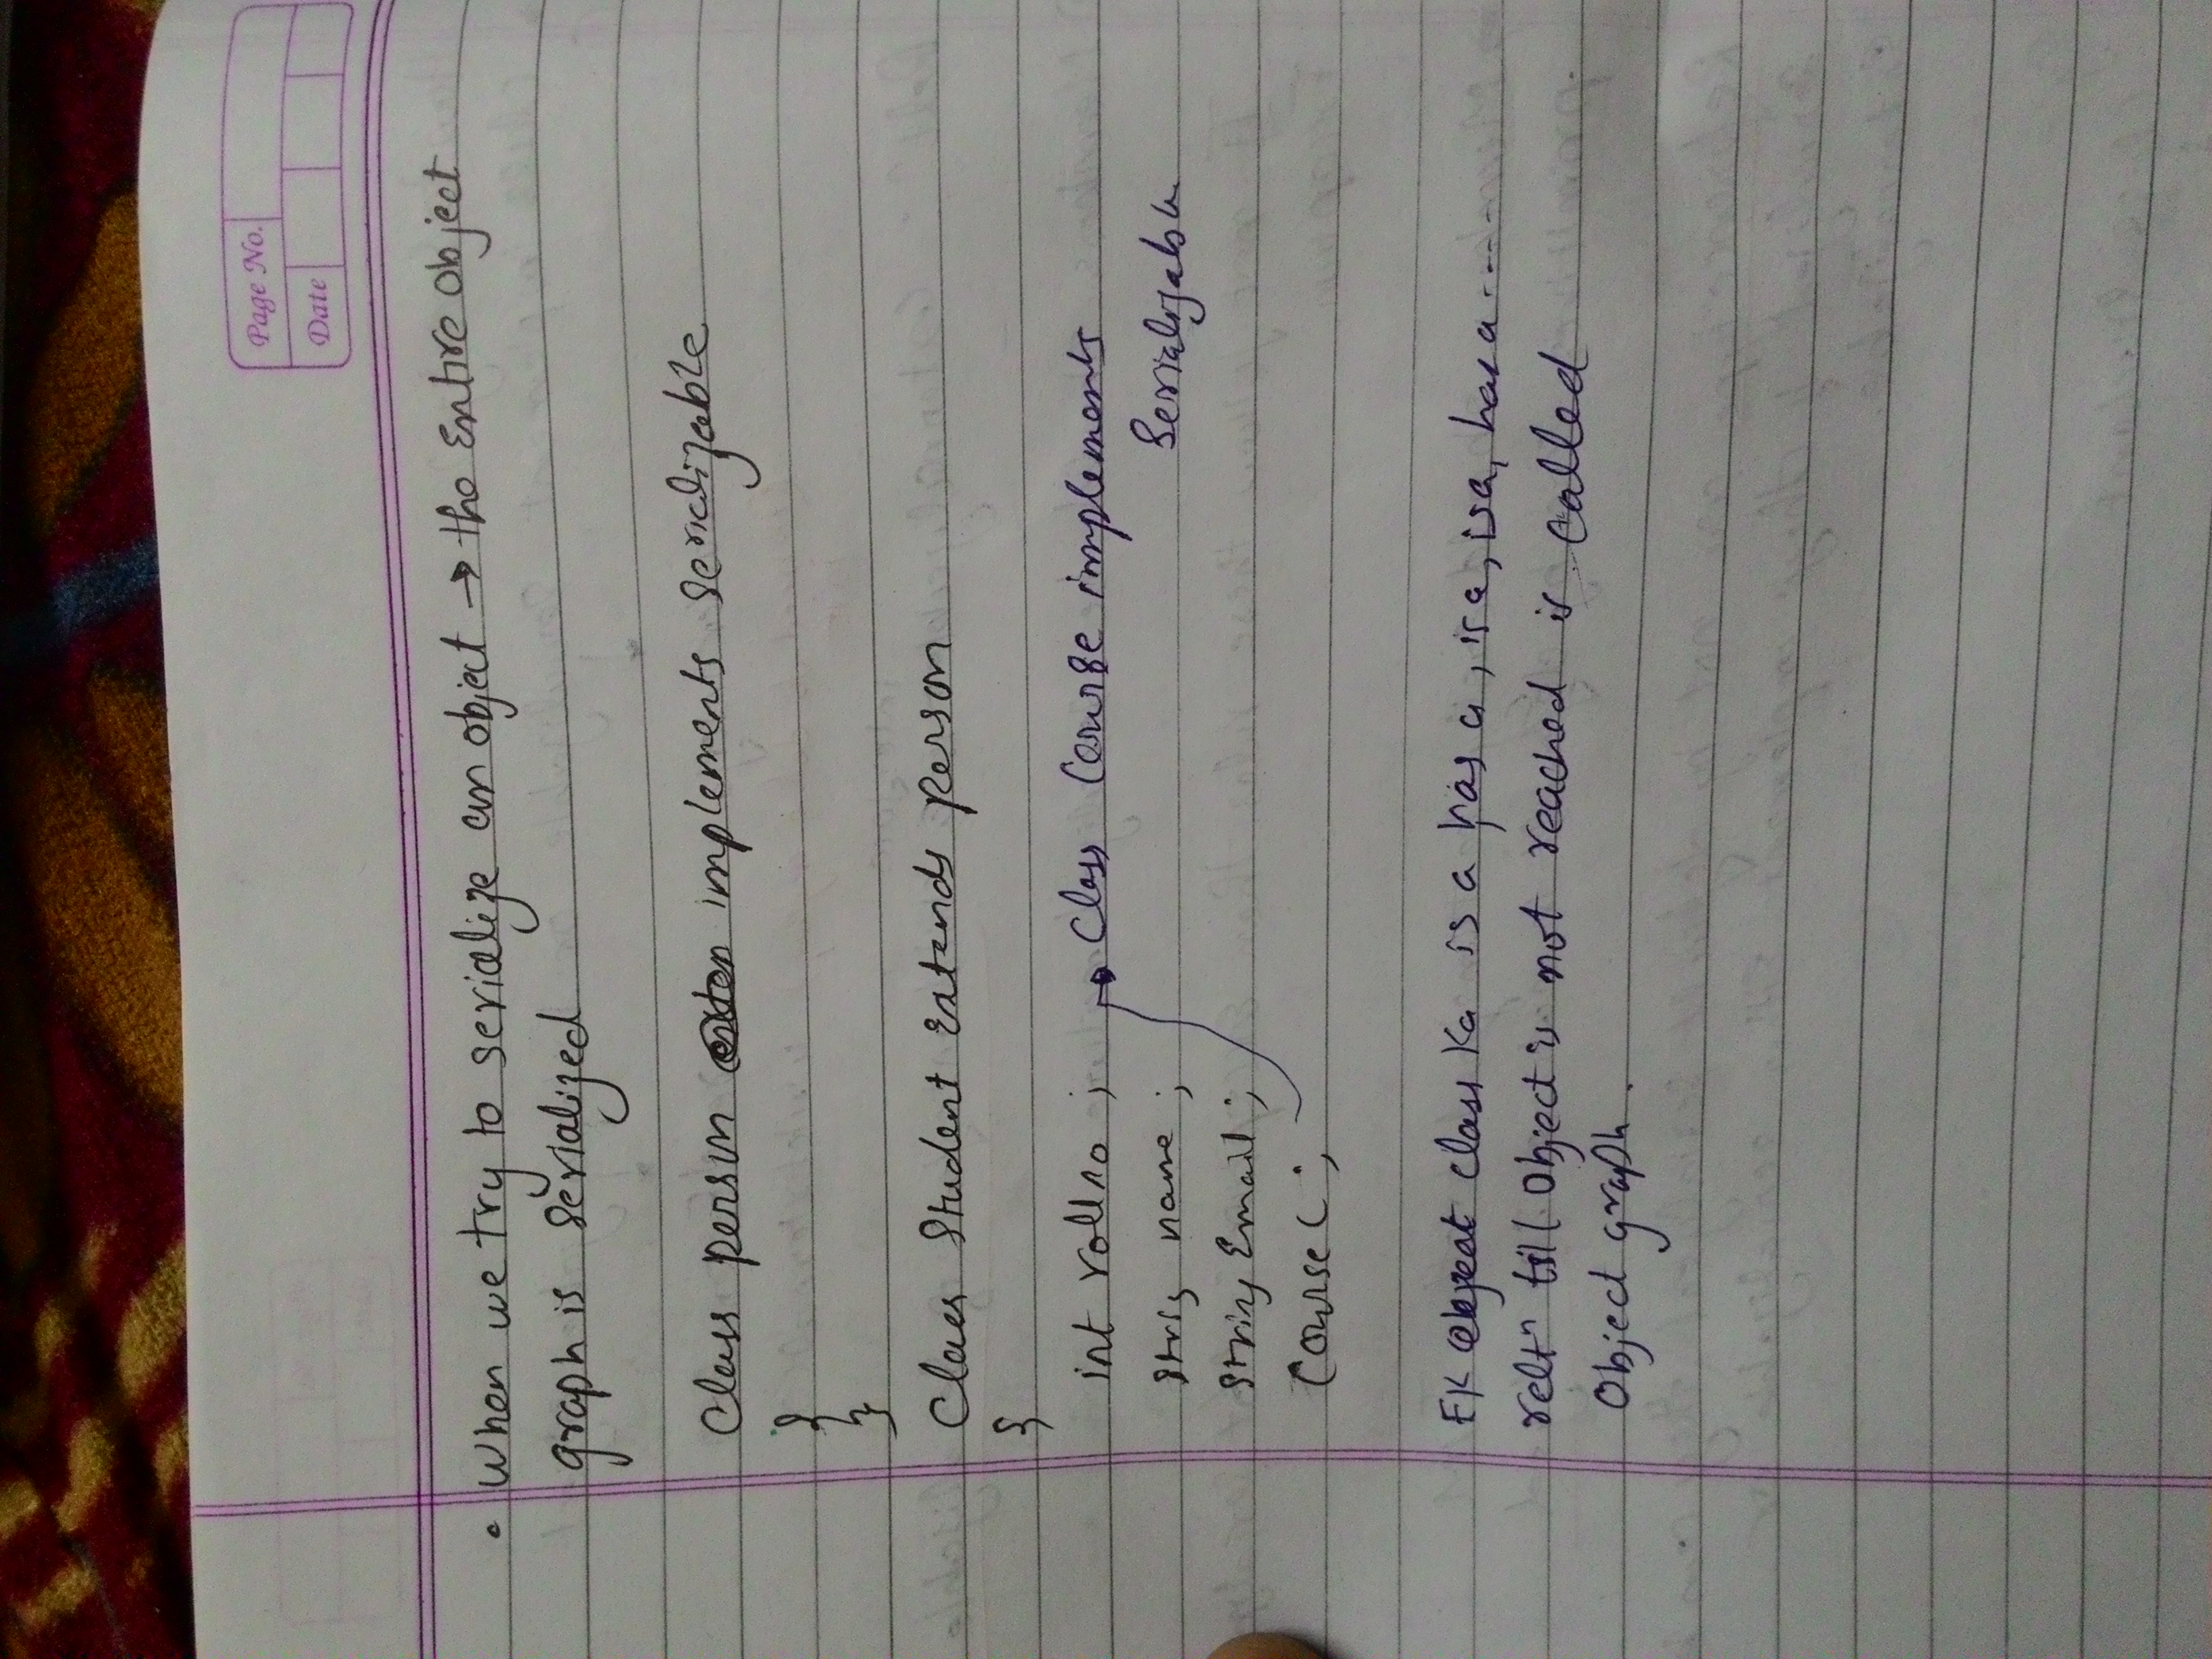 Page No.
Date
• When we try to serialize an object → the Entire Object
graph is serialized
Class person implements Serializable
{
}
Class Student Extends person
{
int rollno ; → Class Course implements
Serializable
String name ;
String Email ;
Course C ;
EK class Ka is a has a, is a, is a, has a ....
reltⁿ till Object is not reached is called
Object graph .